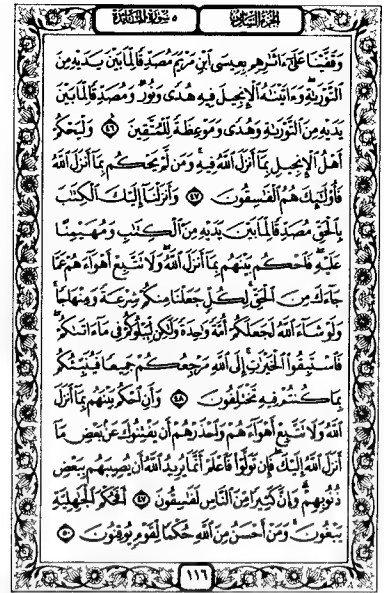 الجزء السادس ٥ سورة المائدة
وَقَفَّيْنَا عَلَىٰ ءَاثَٰرِهِم بِعِيسَى ٱبْنِ مَرْيَمَ مُصَدِّقًا لِّمَا بَيْنَ يَدَيْهِ مِنَ
ٱلتَّوْرَىٰةِ وَءَاتَيْنَٰهُ ٱلْإِنجِيلَ فِيهِ هُدًى وَنُورٌ وَمُصَدِّقًا لِّمَا بَيْنَ
يَدَيْهِ مِنَ ٱلتَّوْرَىٰةِ وَهُدًى وَمَوْعِظَةً لِّلْمُتَّقِينَ ٤٦ وَلْيَحْكُمْ
أَهْلُ ٱلْإِنجِيلِ بِمَآ أَنزَلَ ٱللَّهُ فِيهِ وَمَن لَّمْ يَحْكُم بِمَآ أَنزَلَ ٱللَّهُ
فَأُو۟لَٰٓئِكَ هُمُ ٱلْفَٰسِقُونَ ٤٧ وَأَنزَلْنَآ إِلَيْكَ ٱلْكِتَٰبَ
بِٱلْحَقِّ مُصَدِّقًا لِّمَا بَيْنَ يَدَيْهِ مِنَ ٱلْكِتَٰبِ وَمُهَيْمِنًا
عَلَيْهِ فَٱحْكُم بَيْنَهُم بِمَآ أَنزَلَ ٱللَّهُ وَلَا تَتَّبِعْ أَهْوَآءَهُمْ عَمَّا
جَآءَكَ مِنَ ٱلْحَقِّ لِكُلٍّ جَعَلْنَا مِنكُمْ شِرْعَةً وَمِنْهَاجًا
وَلَوْ شَآءَ ٱللَّهُ لَجَعَلَكُمْ أُمَّةً وَٰحِدَةً وَلَٰكِن لِّيَبْلُوَكُمْ فِي مَآ ءَاتَىٰكُمْ
فَٱسْتَبِقُوا۟ ٱلْخَيْرَٰتِ إِلَى ٱللَّهِ مَرْجِعُكُمْ جَمِيعًا فَيُنَبِّئُكُم
بِمَا كُنتُمْ فِيهِ تَخْتَلِفُونَ ٤٨ وَأَنِ ٱحْكُم بَيْنَهُم بِمَآ أَنزَلَ
ٱللَّهُ وَلَا تَتَّبِعْ أَهْوَآءَهُمْ وَٱحْذَرْهُمْ أَن يَفْتِنُوكَ عَنۢ بَعْضِ مَآ
أَنزَلَ ٱللَّهُ إِلَيْكَ فَإِن تَوَلَّوْا۟ فَٱعْلَمْ أَنَّمَا يُرِيدُ ٱللَّهُ أَن يُصِيبَهُم بِبَعْضِ
ذُنُوبِهِمْ وَإِنَّ كَثِيرًا مِّنَ ٱلنَّاسِ لَفَٰسِقُونَ ٤٩ أَفَحُكْمَ ٱلْجَٰهِلِيَّةِ
يَبْغُونَ وَمَنْ أَحْسَنُ مِنَ ٱللَّهِ حُكْمًا لِّقَوْمٍ يُوقِنُونَ ٥٠
١١٦